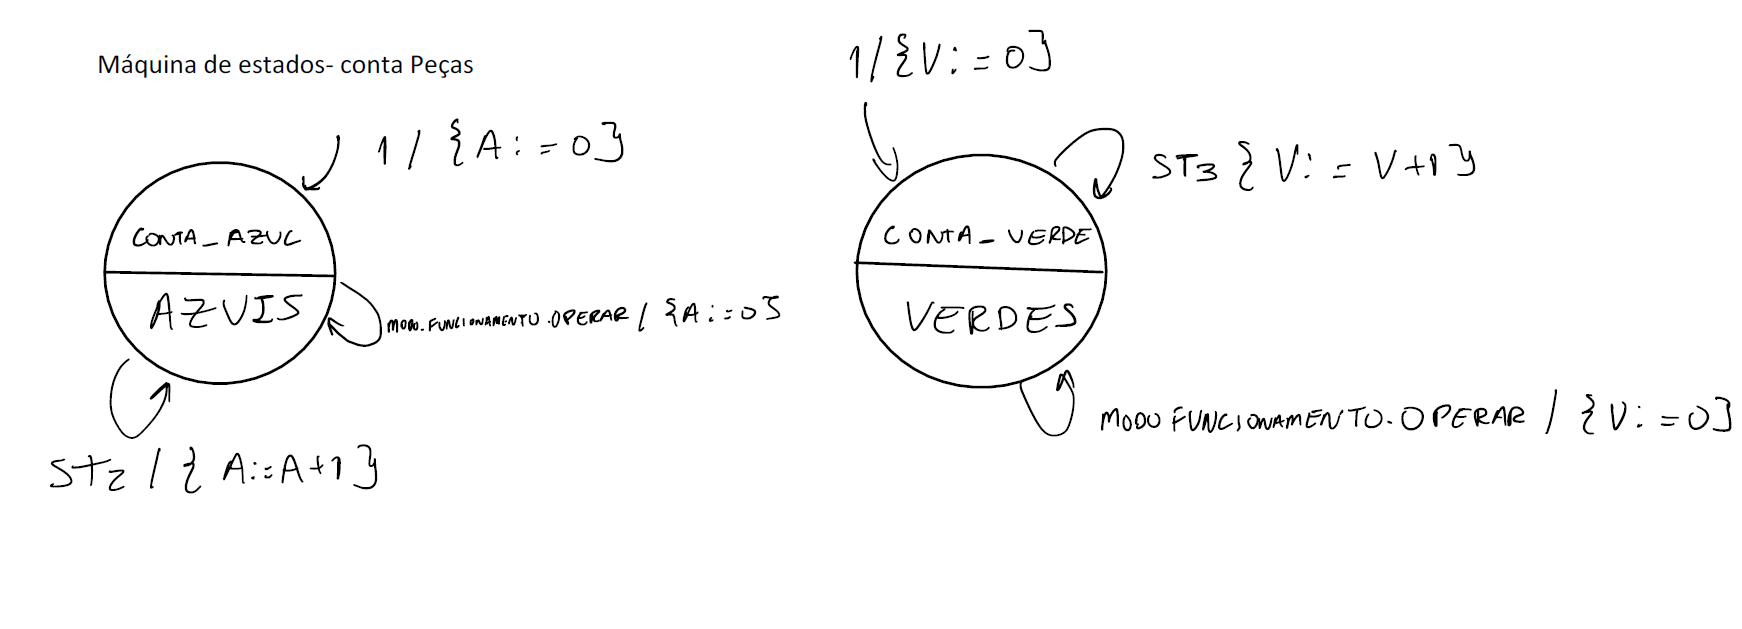 Máquina de estados- conta Peças
1/{A:=0}
CONTA_AZUL
AZUIS
MODO.FUNCIONAMENTO.OPERAR/{A:=0}
ST2/{A:=A+1}
1/{V:=0}
ST3{V:=V+1}
CONTA_VERDE
VERDES
MODO FUNCIONAMENTO.OPERAR/{V:=0}